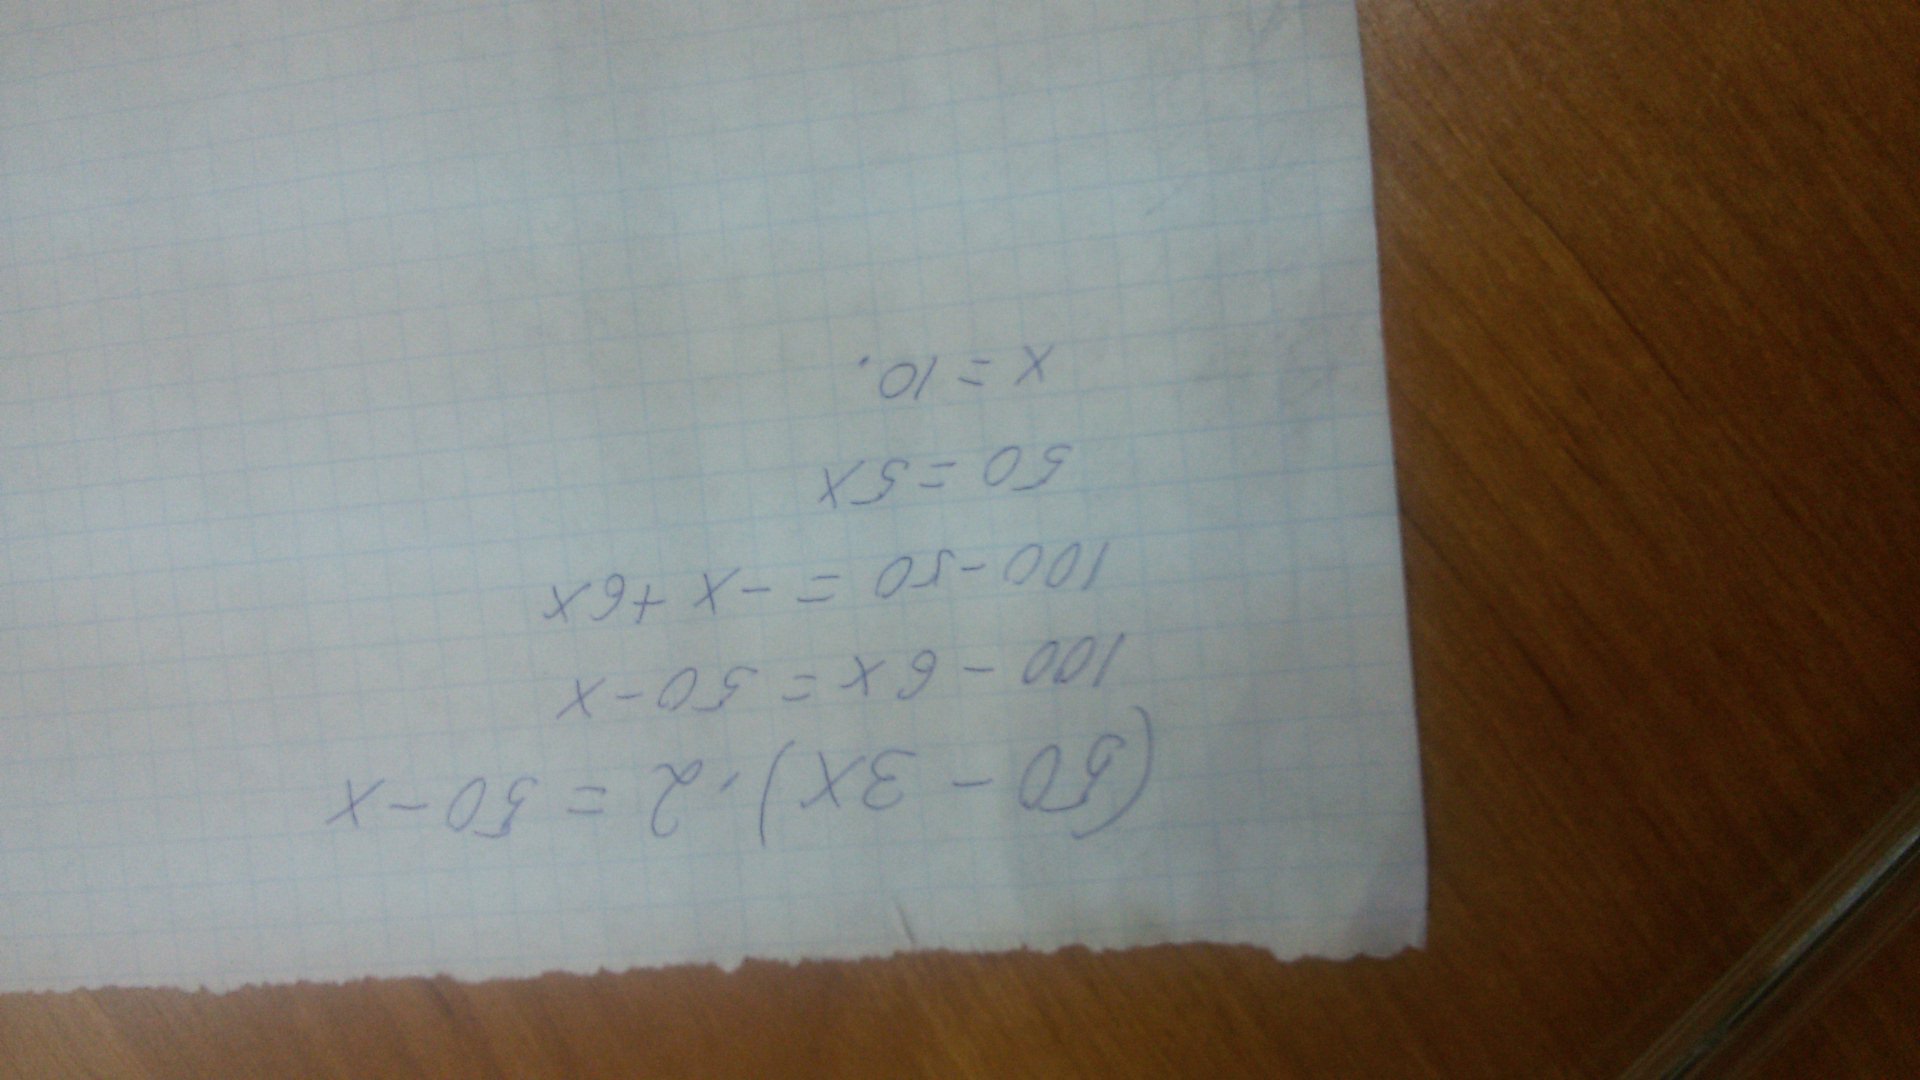 (50 - 3x) · 2 = 50 - x
100 - 6x = 50 - x
100 - 50 = -x + 6x
50 = 5x
x = 10.